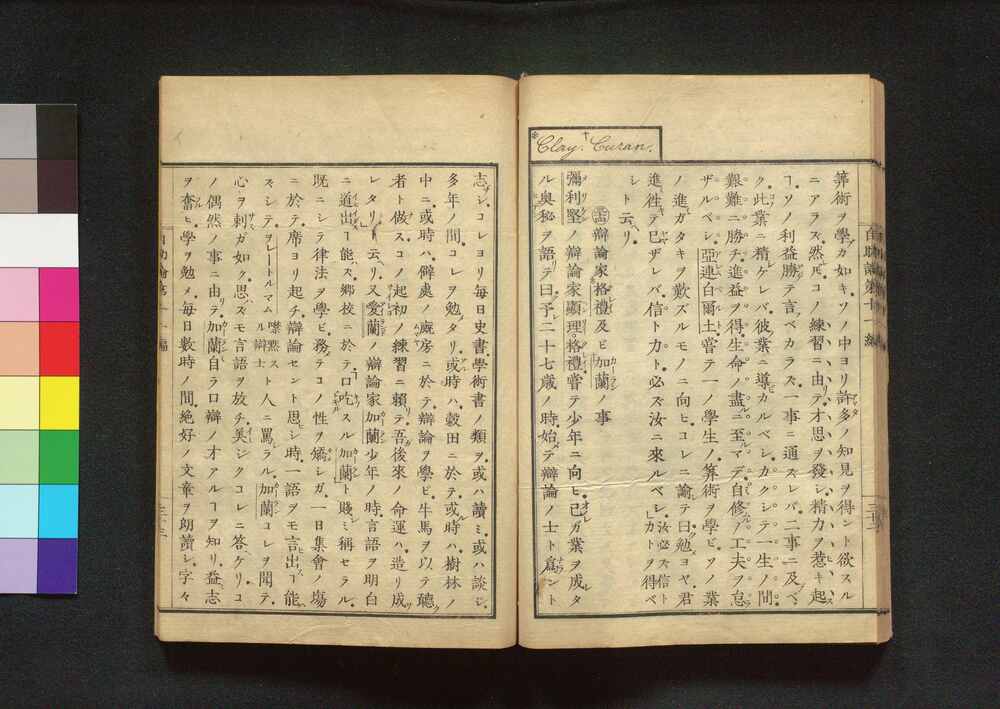 *Clay. †Curan.
算術ヲ學ブガ如キ。ソノ中ヨリ許多ノ知見ヲ得ント欲スル
ニアラズ。然𪜈コノ練習ニ由テ。才思ヲ發シ精力ヲ惹キ起
ヿ。ソノ利益勝テ言ベカラズ。一事ニ通ズレバ。二事ニ及ベ
ク。此業ニ精ケレバ。彼業ニ導カルベシ。カクシテ一生ノ間。
艱難ニ勝チ進益ヲ得。生命ノ盡ニ至マデ。自修ノ工夫ヲ怠
ザルベシ。亞連白爾士嘗テ一ノ學生ノ算術ヲ學ビ。ソノ業
ノ進ガタキヲ歎ズルモノニ向ヒ。コレニ諭テ曰。勉ヨヤ。君
進徃テ已ザレバ。信ト力ト必ズ汝ニ來ルベシ。汝必ズ信トカトヲ得ベ
シト云リ。
辯論家格禮及ビ加蘭ノ事
彌利堅ノ辯論家顯理格禮。嘗テ少年ニ向ヒ。己ガ業ヲ成タ
ル奥秘ヲ語テ曰。予二十七歳ノ時。始メテ辯論ノ士ト爲ント
志シ。コレヨリ毎日史書學術書ノ類ヲ。或ハ讀ミ。或ハ談ジ。
多年ノ間。コレヲ勉タリ。或時ハ穀田ニ於テ。或時ハ樹林ノ
中ニ。或時ハ僻處ノ廠房ニ於テ。辯論ヲ學ビ。牛馬ヲ以テ聽
者ト做ス。コノ起初ノ練習ニ賴テ。吾後來ノ命運ハ造リ成
レタリト云リ。又愛蘭ノ辯論家加蘭。少年ノ時。言語ヲ明白
ニ道出ヿ能ズ。鄉校ニ於テ口吃スル加蘭ト賤ミ稱セラル。
既ニシテ律法ヲ學ビ。務テコノ性ヲ矯シガ。一日集會ノ塲
ニ於テ。席ヨリ起チ。辯論セント思シ時。一語ヲモ言出ヿ能
ズシテヲレートルマム噤黙スル辯士ト人ニ罵ラル。加蘭コレヲ聞テ。
心ヲ刺ガ如ク。思ズモ言語ヲ放チ。美シクコレニ答ケリ。コ
ノ偶然ノ事ニ由テ。加蘭自ラ口辯ノ才アルヿヲ知リ。益志
ヲ奮ヒ。學ヲ勉メ。毎日數時ノ間。絶好ノ文章ヲ朗讀シ。字々